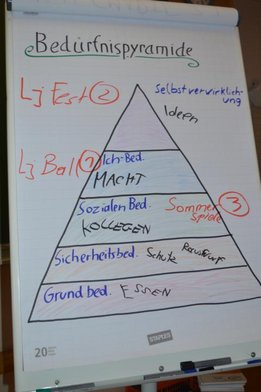 Bedürfnispyramide
Lj Fest ②
Selbstverwirklich-
ung
Ideen
Lj Ball ①
Ich-Bed.
MACHT
Sozialen Bed.
KOLLEGEN
Sommer
Spiele ③
Sicherheitsbed. Schutz
Grundbed. ESSEN
STAPLES
20